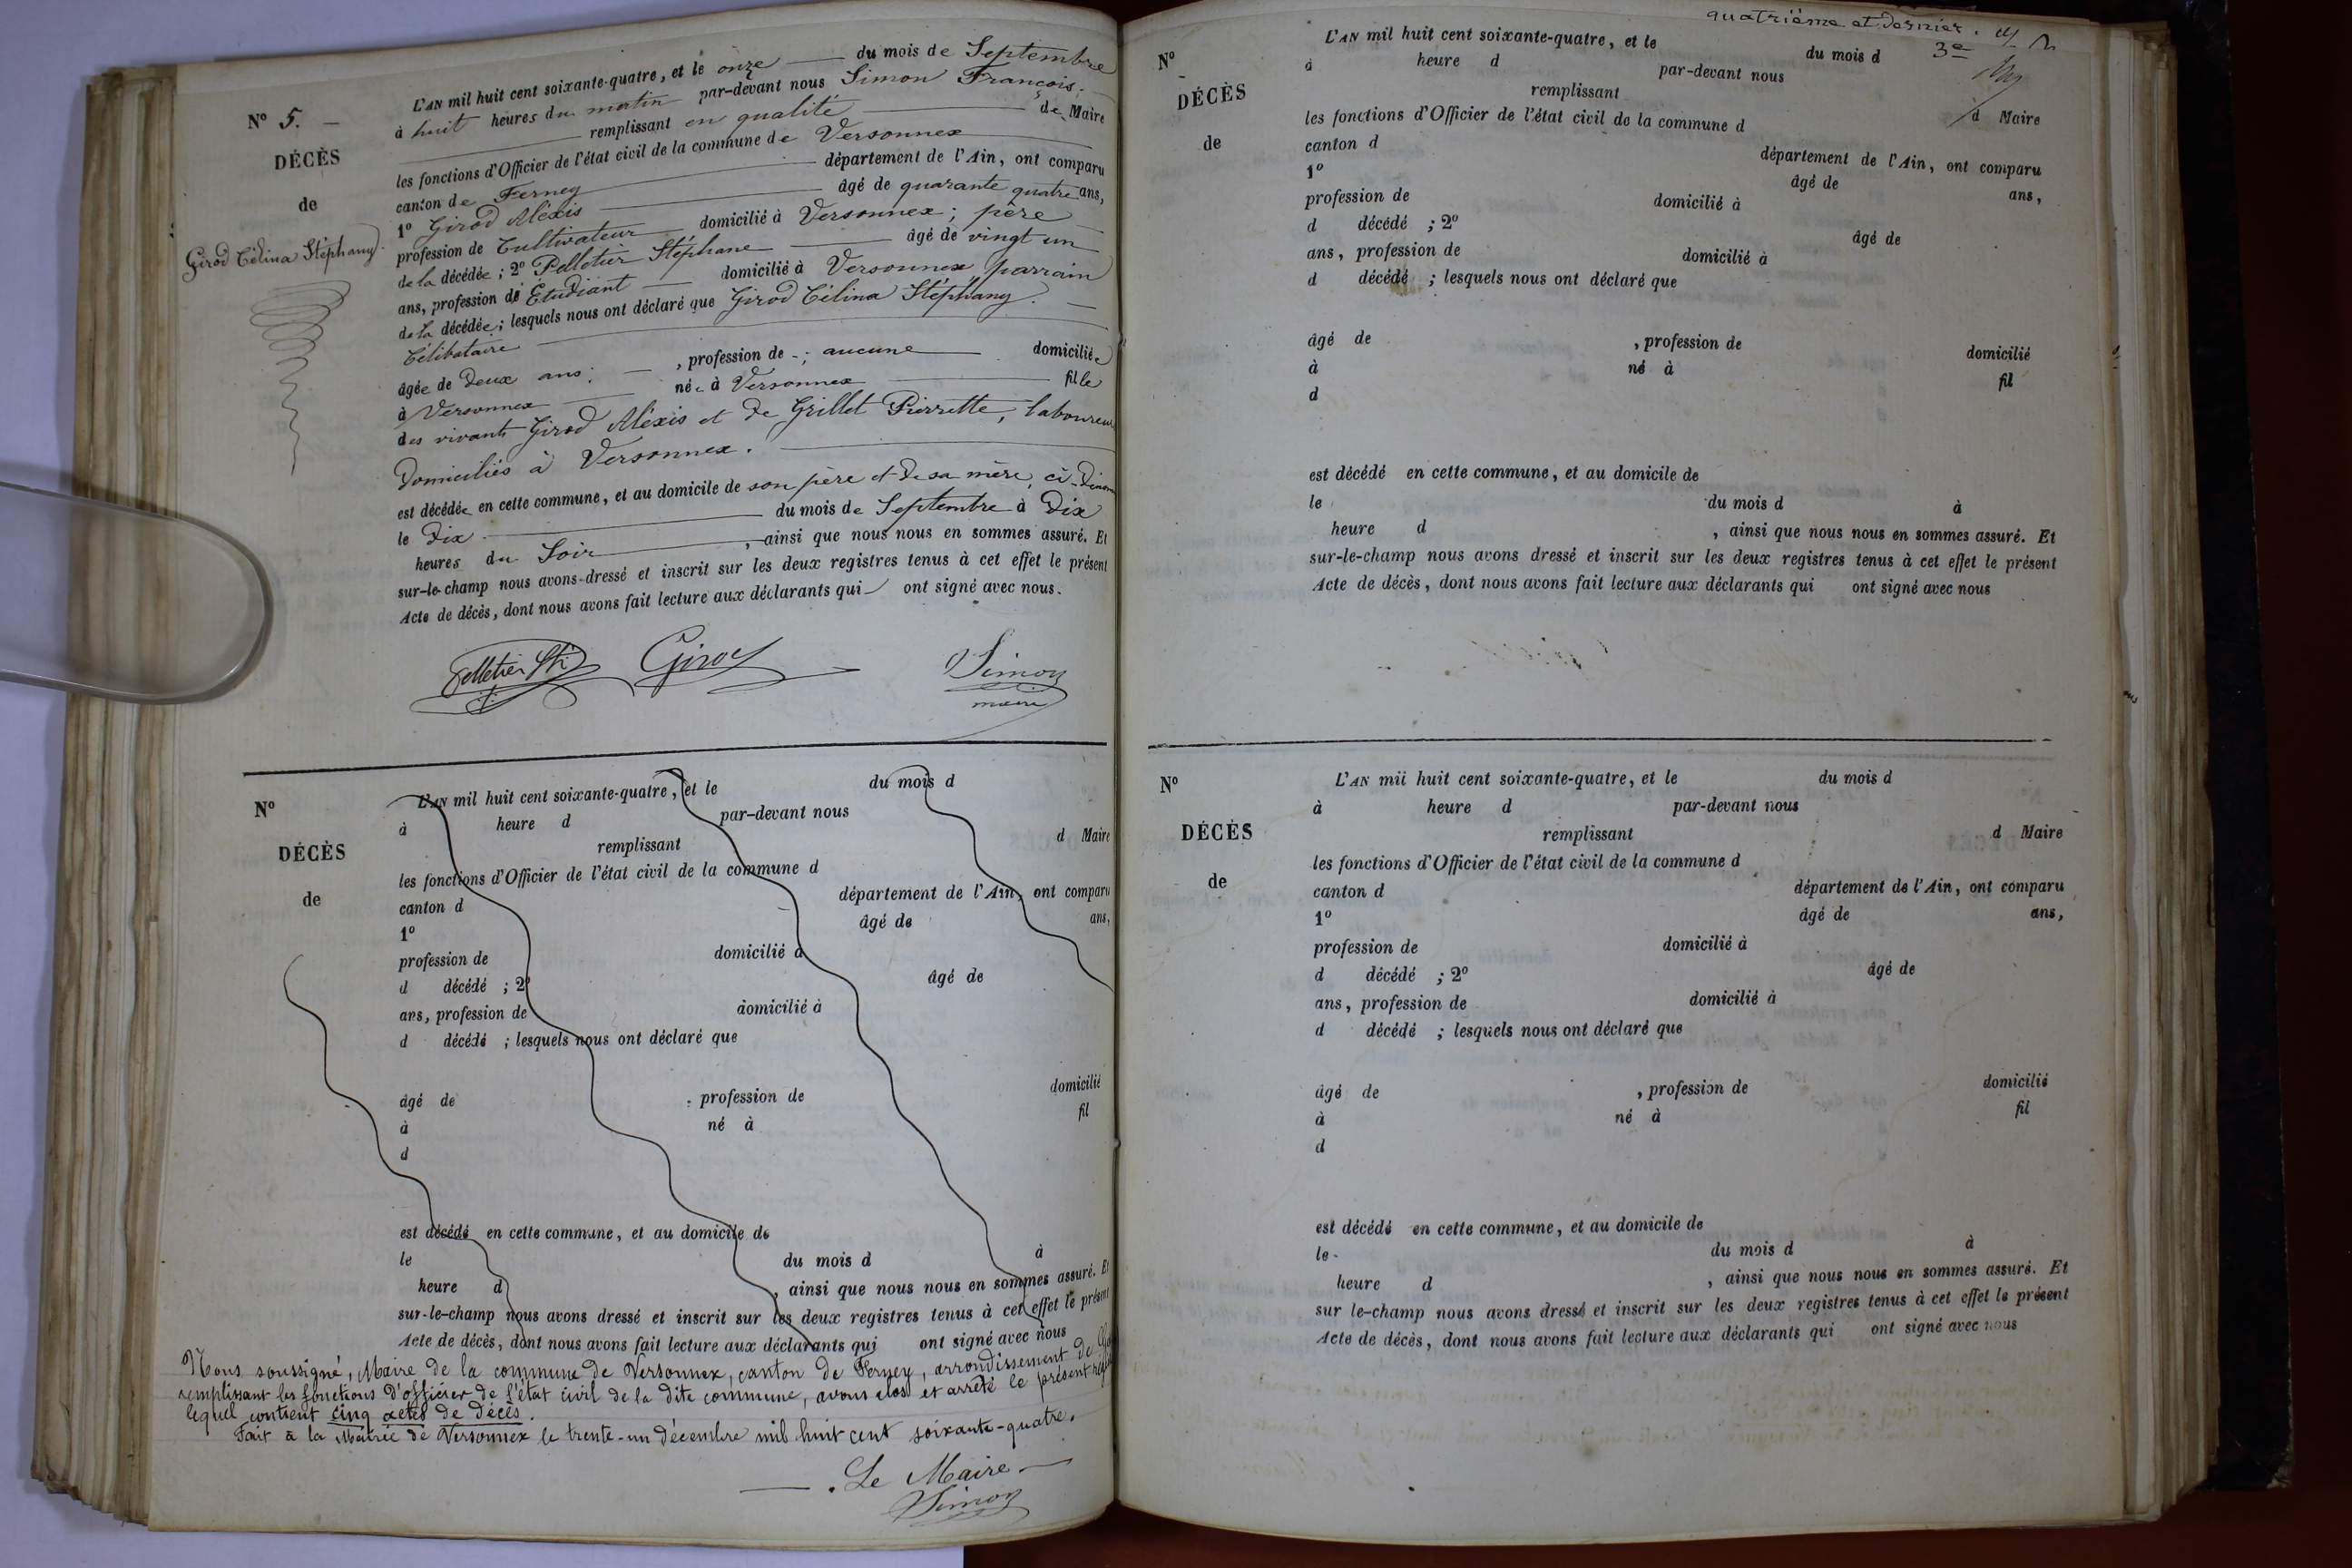 N° 5. —
DÉCÈS
de
Girod Célina Stéphany.
L'AN mil huit cent soixante-quatre, et le onze — du mois de Septembre
à huit heures du matin par-devant nous Simon François.
remplissant en qualité de Maire
les fonctions d'Officier de l'état civil de la commune de Versonnex
canton de Ferney département de l'Ain, ont comparu
1° Girod Aléxis âgé de quarante quatre ans,
profession de Cultivateur domicilié à Versonnex; père
de la décédée; 2° Pelletier Stéphane âgé de vingt un
ans, profession de Etudiant domicilié à Versonnex parrain
de la décédée; lesquels nous ont déclaré que Girod Célina Stéphany.
Célibataire
âgée de Deux ans; , profession de - ; aucune domiciliée
à Versonnex née à Versonnex fille
des vivants Girod Aléxis et de Grillet Pierrette, laboureurs
Domiciliés à Versonnex.
est décédée en cette commune, et au domicile de son père et de sa mère, ci-
le Dix du mois de Septembre à Dix
heures du Soir, ainsi que nous nous en sommes assuré. Et
sur-le-champ nous avons dressé et inscrit sur les deux registres tenus à cet effet le présent
Acte de décès, dont nous avons fait lecture aux déclarants qui ont signé avec nous.
Pelletier Sté Girod Simon
maire
N°
DÉCÈS
de
L'AN mil huit cent soixante-quatre, et le du mois d
à heure d par-devant nous
remplissant d Maire
les fonctions d'Officier de l'état civil de la commune d
canton d département de l'Ain, ont comparu
1° âgé de ans,
profession de domicilié à
d décédé ; 2° âgé de
ans, profession de domicilié à
d décédé ; lesquels nous ont déclaré que
âgé de , profession de domicilié
à né à fil
d
est décédé en cette commune, et au domicile de
le du mois d à
heure d , ainsi que nous nous en sommes assuré. Et
sur-le-champ nous avons dressé et inscrit sur les deux registres tenus à cet effet le présent
Acte de décès, dont nous avons fait lecture aux déclarants qui ont signé avec nous
Nous soussigné, Maire de la commune de Versonnex, canton de Ferney, arrondissement de
remplissant les fonctions d'officier de l'état civil de la dite commune, avons clos et arrêté le présent
lequel contient cinq actes de décès.
Fait à la Mairie de Versonnex le trente-un décembre mil huit cent soixante-quatre.
Le Maire
Simon
quatrième et dernier.
3e
N°
DÉCÈS
de
L'AN mil huit cent soixante-quatre, et le du mois d
à heure d par-devant nous
remplissant d Maire
les fonctions d'Officier de l'état civil de la commune d
canton d département de l'Ain, ont comparu
1° âgé de ans,
profession de domicilié à
d décédé ; 2° âgé de
ans, profession de domicilié à
d décédé ; lesquels nous ont déclaré que
âgé de , profession de domicilié
à né à fil
d
est décédé en cette commune, et au domicile de
le du mois d à
heure d , ainsi que nous nous en sommes assuré. Et
sur-le-champ nous avons dressé et inscrit sur les deux registres tenus à cet effet le présent
Acte de décès, dont nous avons fait lecture aux déclarants qui ont signé avec nous
N°
DÉCÈS
de
L'AN mil huit cent soixante-quatre, et le du mois d
à heure d par-devant nous
remplissant d Maire
les fonctions d'Officier de l'état civil de la commune d
canton d département de l'Ain, ont comparu
1° âgé de ans,
profession de domicilié à
d décédé ; 2° âgé de
ans, profession de domicilié à
d décédé ; lesquels nous ont déclaré que
âgé de , profession de domicilié
à né à fil
d
est décédé en cette commune, et au domicile de
le du mois d à
heure d , ainsi que nous nous en sommes assuré. Et
sur le-champ nous avons dressé et inscrit sur les deux registres tenus à cet effet le présent
Acte de décès, dont nous avons fait lecture aux déclarants qui ont signé avec nous